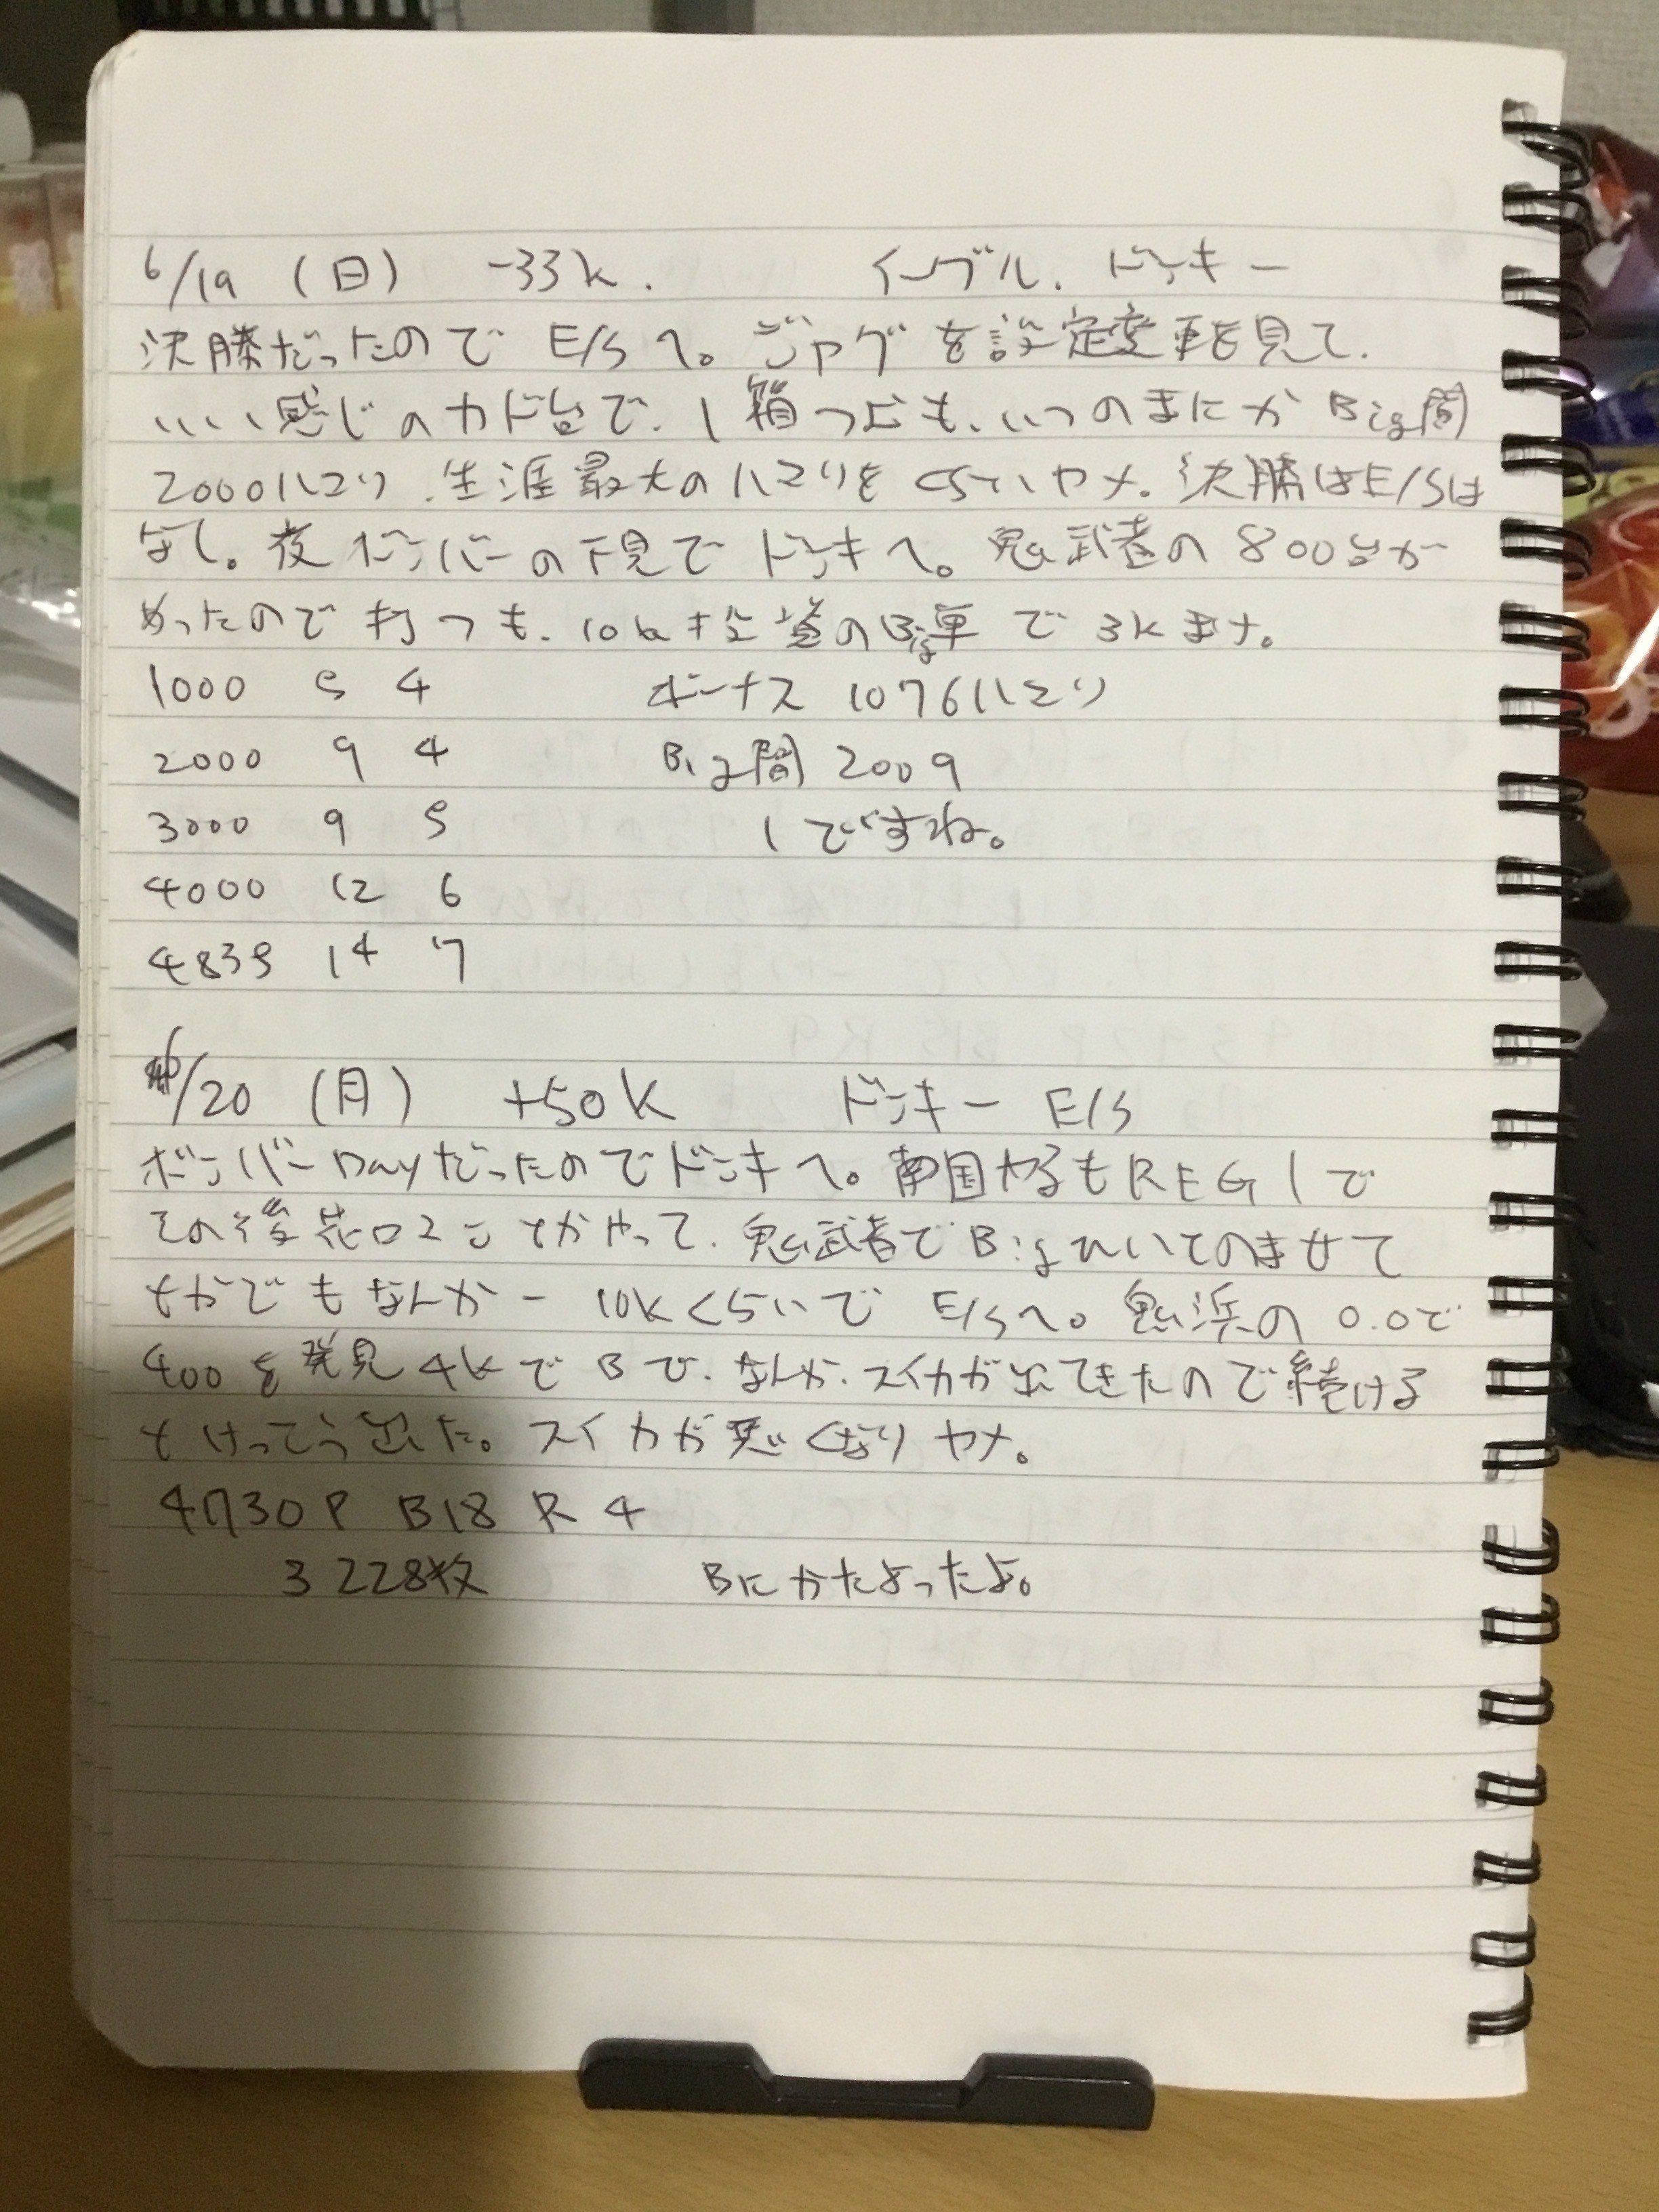 6/19 (日) -33k. イーブル、ドンキー
決勝だったので E/Sへ。ジャグを設定変更を見て、
いい感じのカド台で、1箱つむも、いつのまにか Big間
2000ハマり、生涯最大のハマりをくらいヤメ。決勝はE/Sは
なし。夜ボンバーの下見でドンキへ。鬼武者の800台が
あったので打つも、10k投資のBig単で3kまけ。
1000 5 4 ボーナス 1076ハマり
2000 9 4 Big間 2009
3000 9 5 1ですね。
4000 12 6
4835 14 7
6/20 (月) +50k ドンキー E/S
ボンバーDayだったのでドンキへ。南国やるもREG1で
その後花口2 とかやって、鬼武者でBigひいてのませて
とかでもなんか -10kくらいで E/Sへ。鬼浜の0.0で
400を発見4kでBで、なんか、スイカが出てきたので続ける
とけっこう出た。スイカが悪くなりヤメ。
4730P B18 R4
3228枚 Bにかたよったよ。